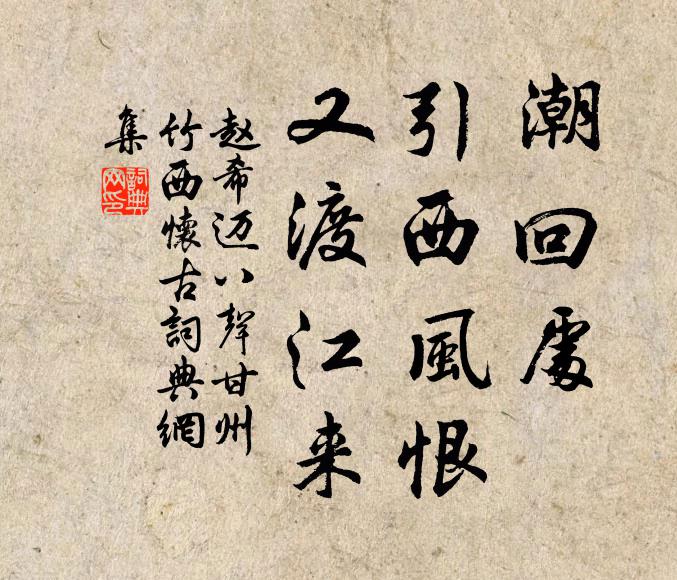 潮回處
引西風恨
又渡江来
赵希迈八聲甘州
竹西懷古詞典網
集
詞典
网印